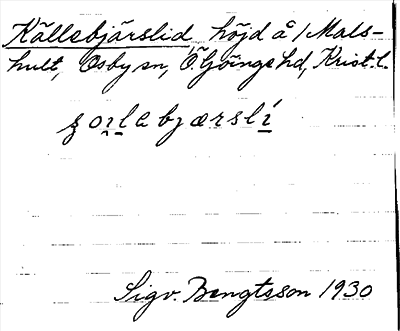 Källebjärslid, höjd å /Mals-
hult, Osby sn, Ö Göinge hd, Krist. l.
ʂoɪlabjærslí
Sigv. Bengtsson 1930